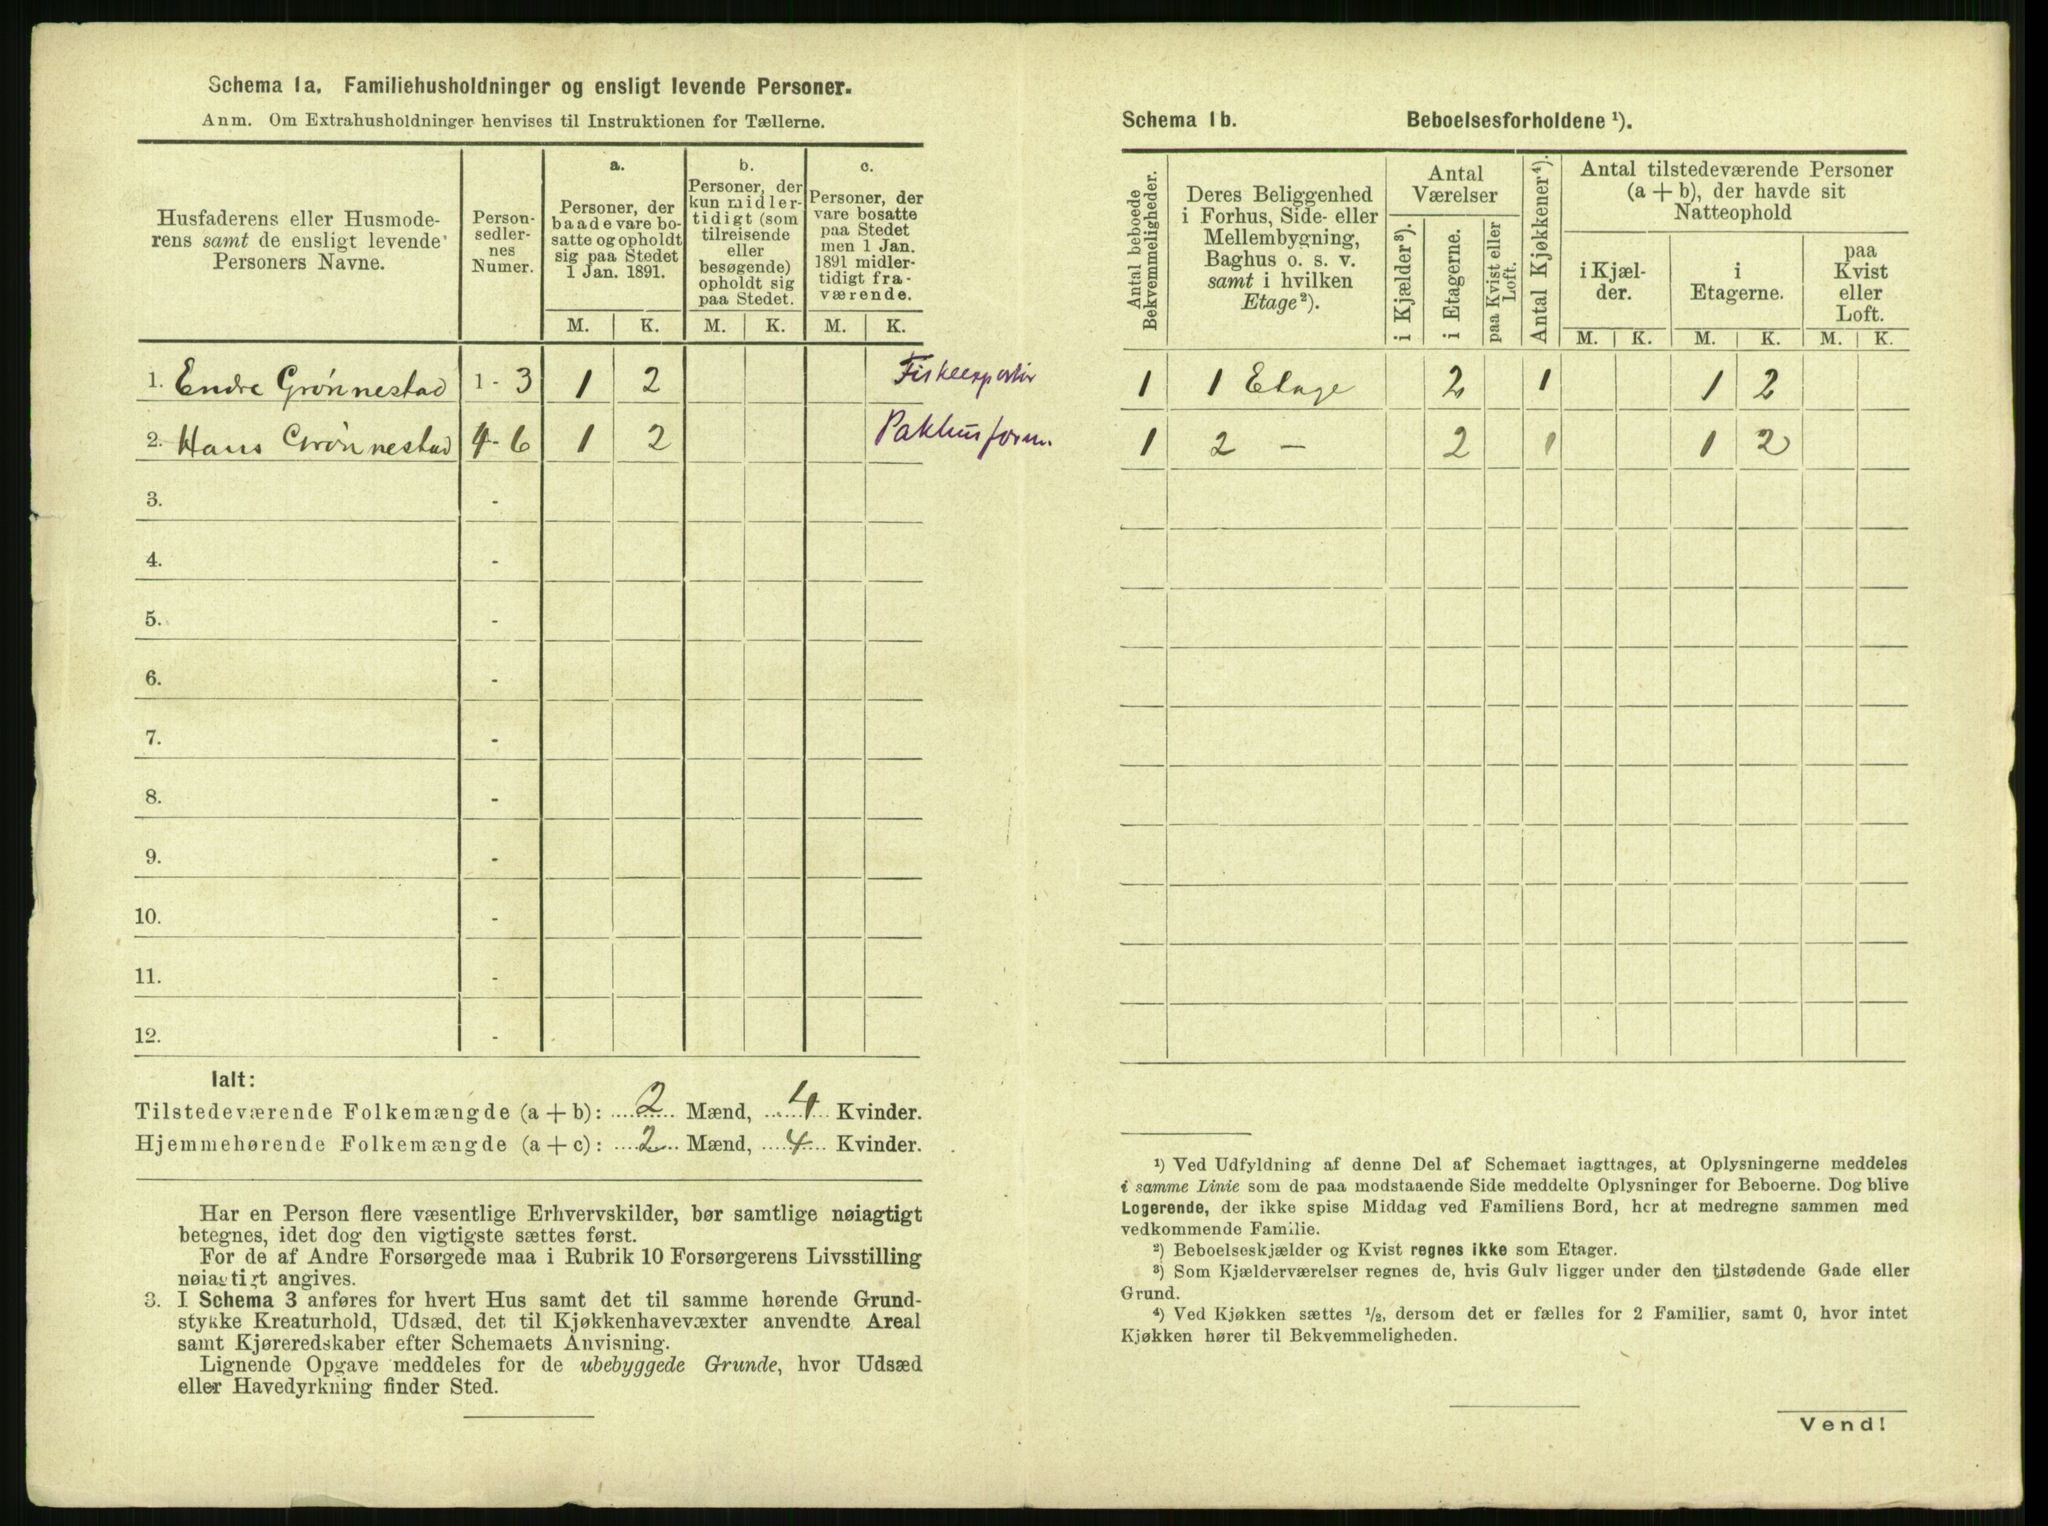 Schema 1a. Familiehusholdninger og ensligt levende Personer.
Anm. Om Extrahusholdninger henvises til Instruktionen for Tællerne.
Husfaderens eller Husmode-
rens samt de ensligt levende
Personers Navne.
Person-
sedler-
nes
Numer.
a.
Personer, der
baade vare bo-
satte og opholdt
sig paa Stedet
1 Jan. 1891.
b.
Personer, der
kun midler-
tidigt (som
tilreisende
eller
besøgende)
opholdt sig
paa Stedet.
c.
Personer, der
vare bosatte
paa Stedet
men 1 Jan.
1891 midler-
tidigt fra-
værende.
M. K. M. K. M. K.
1. Endre Grönnestad 1 - 3 1 2 Fiskeexportør
2. Hans Grönnestad 4 - 6 1 2 Pakhusform.
3. -
4. -
5. -
6. -
7. -
8. -
9. -
10. -
11. -
12. -
Ialt:
Tilstedeværende Folkemængde (a + b): 2 Mænd, 4 Kvinder.
Hjemmehørende Folkemængde (a + c): 2 Mænd, 4 Kvinder.
Har en Person flere væsentlige Erhvervskilder, bør samtlige nøiagtigt
betegnes, idet dog den vigtigste sættes først.
For de af Andre Forsørgede maa i Rubrik 10 Forsørgerens Livsstilling
nøiagtigt angives.
3. I Schema 3 anføres for hvert Hus samt det til samme hørende Grund-
stykke Kreaturhold, Udsæd, det til Kjøkkenhavevæxter anvendte Areal
samt Kjøreredskaber efter Schemaets Anvisning.
Lignende Opgave meddeles for de ubebyggede Grunde, hvor Udsæd
eller Havedyrkning finder Sted.
Schema 1b. Beboelsesforholdene ¹).
Antal beboede
Bekvemmeligheder.
Deres Beliggenhed
i Forhus, Side- eller
Mellembygning,
Baghus o. s. v.
samt i hvilken
Etage ²).
Antal
Værelser
i Kjælder ³).
i Etagerne.
paa Kvist eller
Loft.
Antal Kjøkkener ⁴).
Antal tilstedeværende Personer
(a + b), der havde sit
Natteophold
i Kjæl-
der.
i
Etagerne.
paa
Kvist
eller
Loft.
M. K. M. K. M. K.
1 1 Etage 2 1 1 2
1 2 — 2 1 1 2
¹) Ved Udfyldning af denne Del af Schemaet iagttages, at Oplysningerne meddeles
i samme Linie som de paa modstaaende Side meddelte Oplysninger for Beboerne. Dog blive
Logerende, der ikke spise Middag ved Familiens Bord, her at medregne sammen med
vedkommende Familie.
²) Beboelseskjælder og Kvist regnes ikke som Etager.
³) Som Kjælderværelser regnes de, hvis Gulv ligger under den tilstødende Gade eller
Grund.
⁴) Ved Kjøkken sættes ½, dersom det er fælles for 2 Familier, samt 0, hvor intet
Kjøkken hører til Bekvemmeligheden.
Vend!